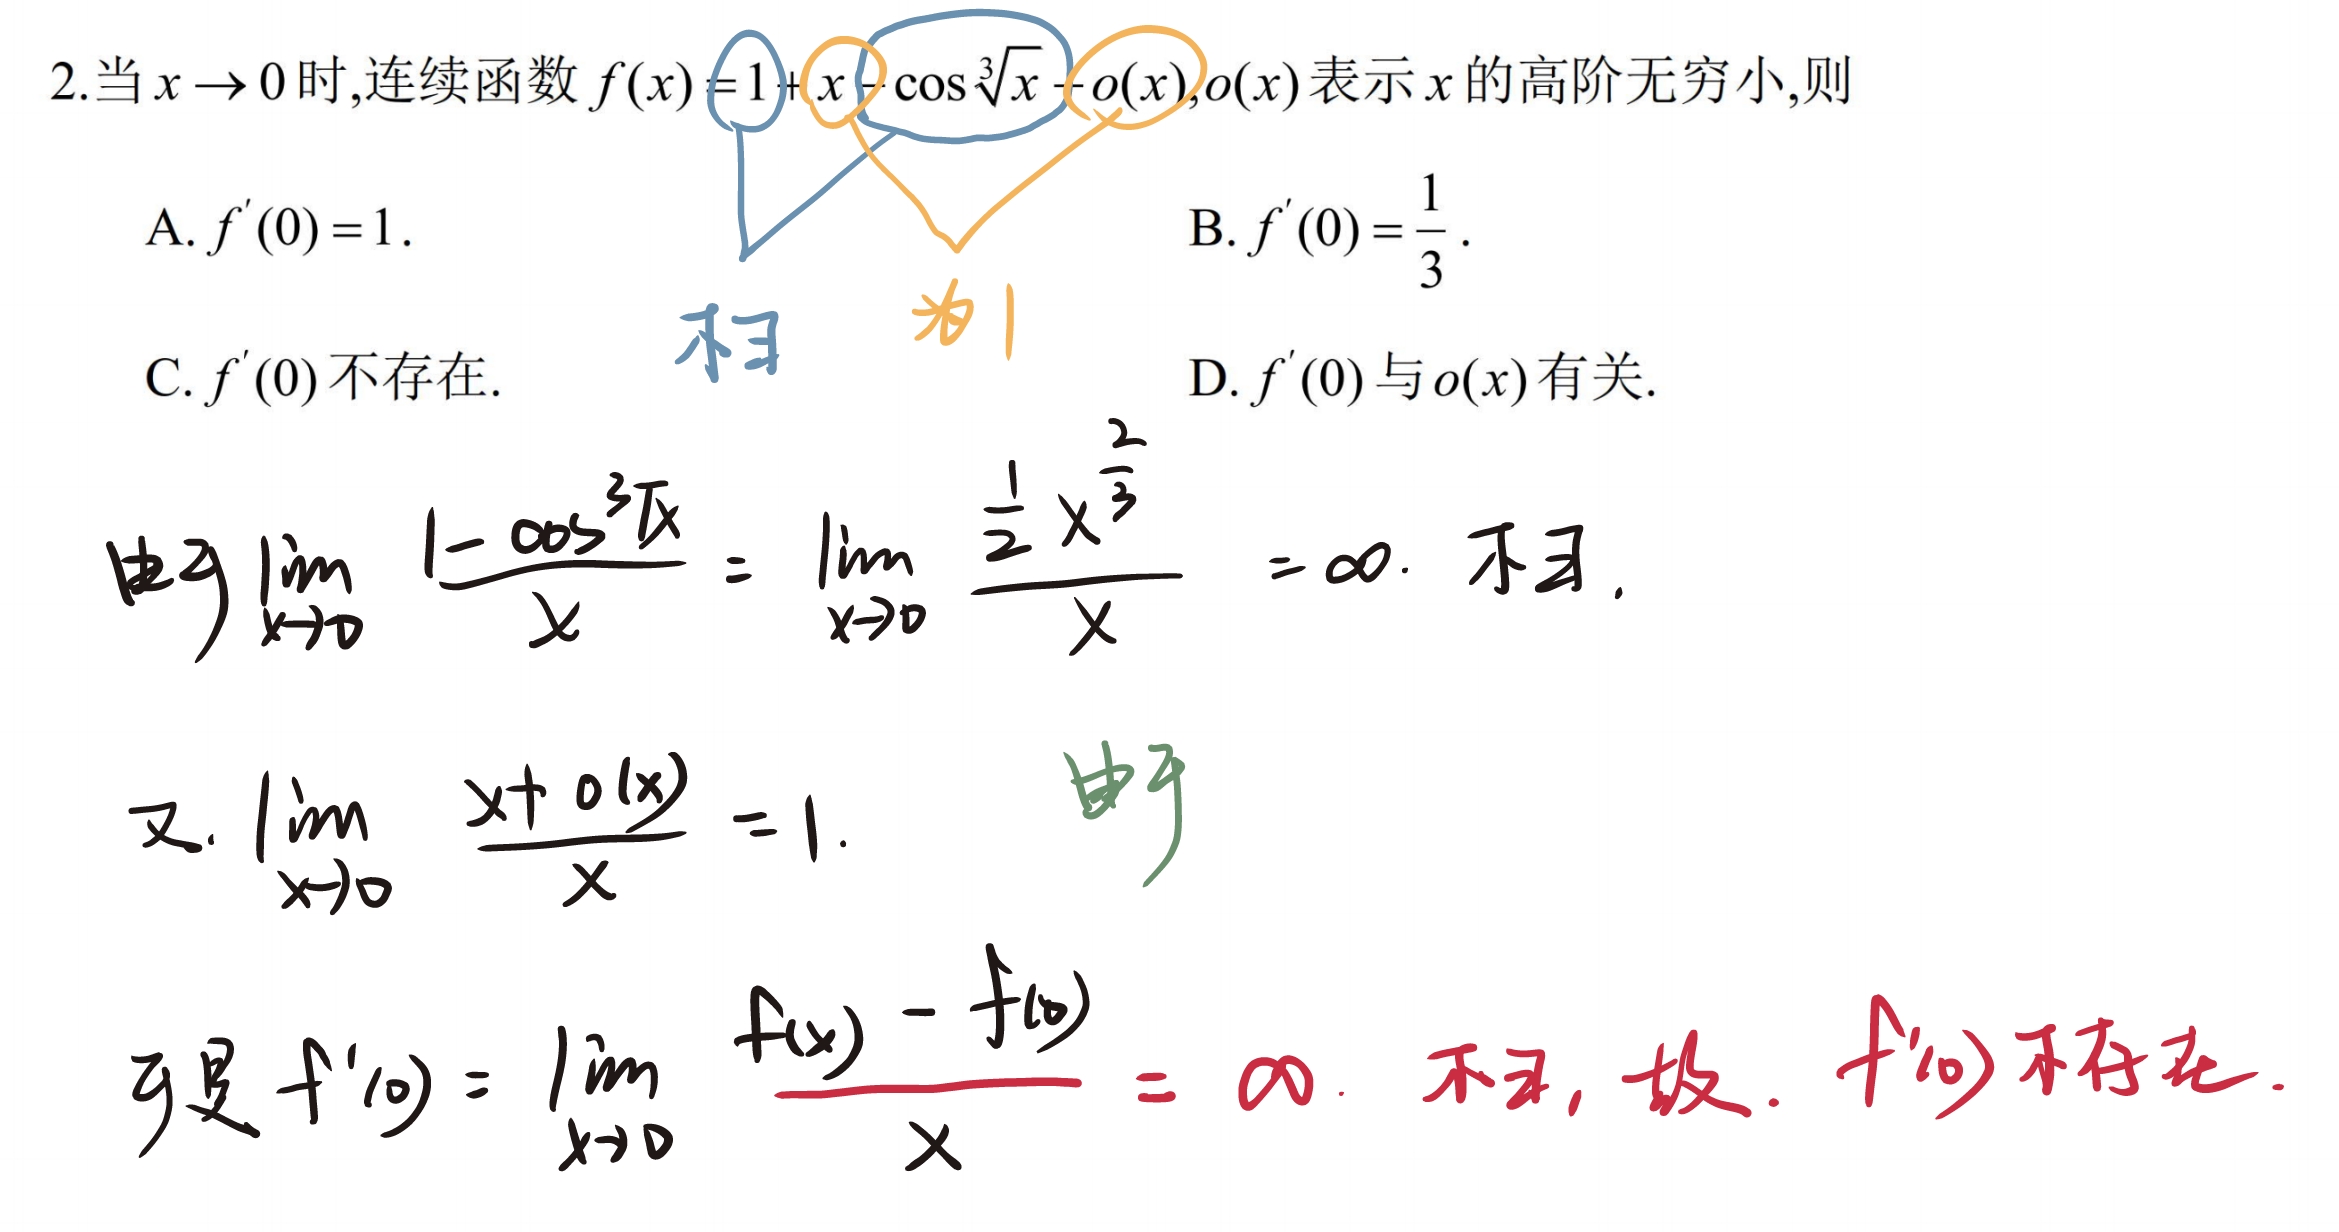 2.当 x → 0 时,连续函数 f(x) = 1 + x - cos∛x + o(x), o(x) 表示 x 的高阶无穷小,则
A. f′(0) = 1.
B. f′(0) = 1/3 .
不∃
为1
C. f′(0) 不存在.
D. f′(0) 与 o(x) 有关.
由于 lim x→0 (1 - cos ∛x)/x = lim x→0 (1/2 x^(2/3))/x = ∞. 不∃.
又. lim x→0 (x + o(x))/x = 1.
由于
于是 f'(0) = lim x→0 (f(x) - f(0))/x = ∞. 不∃, 故. f'(0) 不存在.